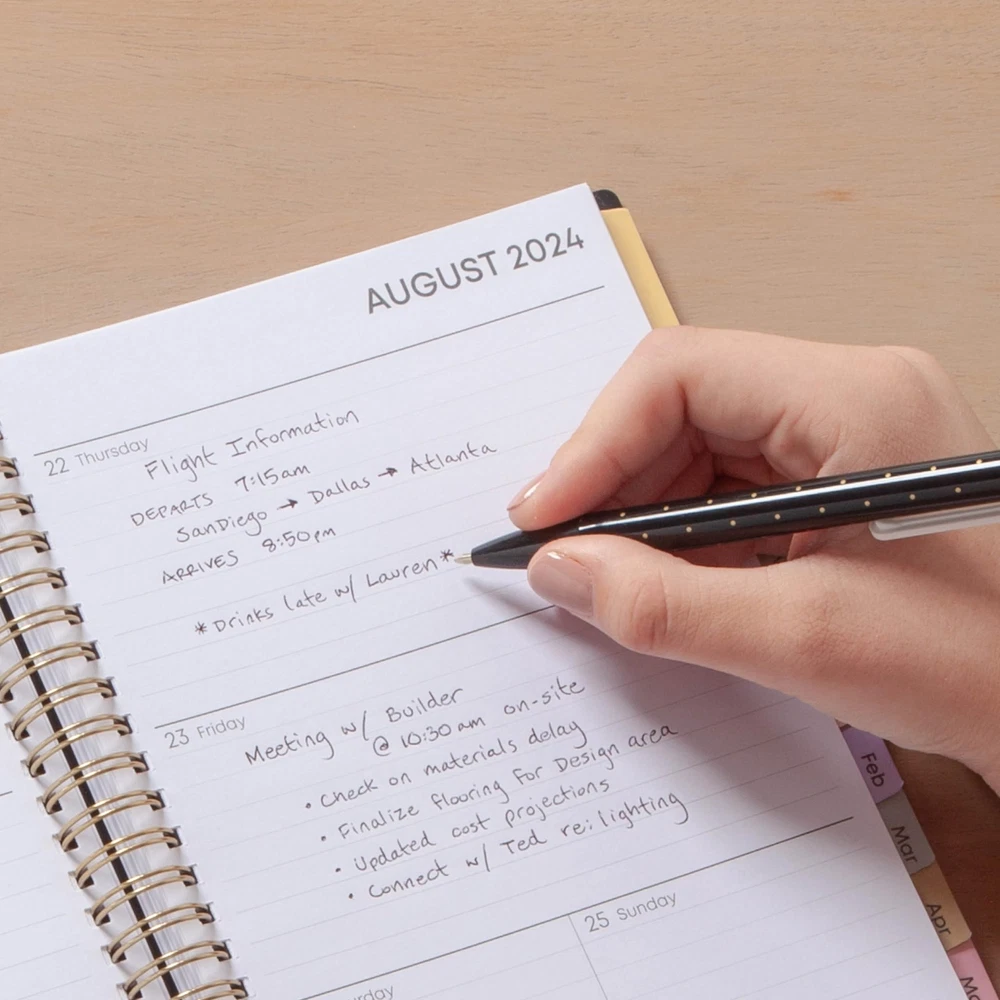 AUGUST 2024
22 Thursday
Flight Information
DEPARTS 7:15am
SanDiego → Dallas → Atlanta
ARRIVES 8:50pm
*Drinks late w/ Lauren*
23 Friday
Meeting w/ Builder
@ 10:30 am on-site
• Check on materials delay
• Finalize flooring for Design area
• Updated cost projections
• Connect w/ Ted re: lighting
25 Sunday
Feb
Mar
Apr